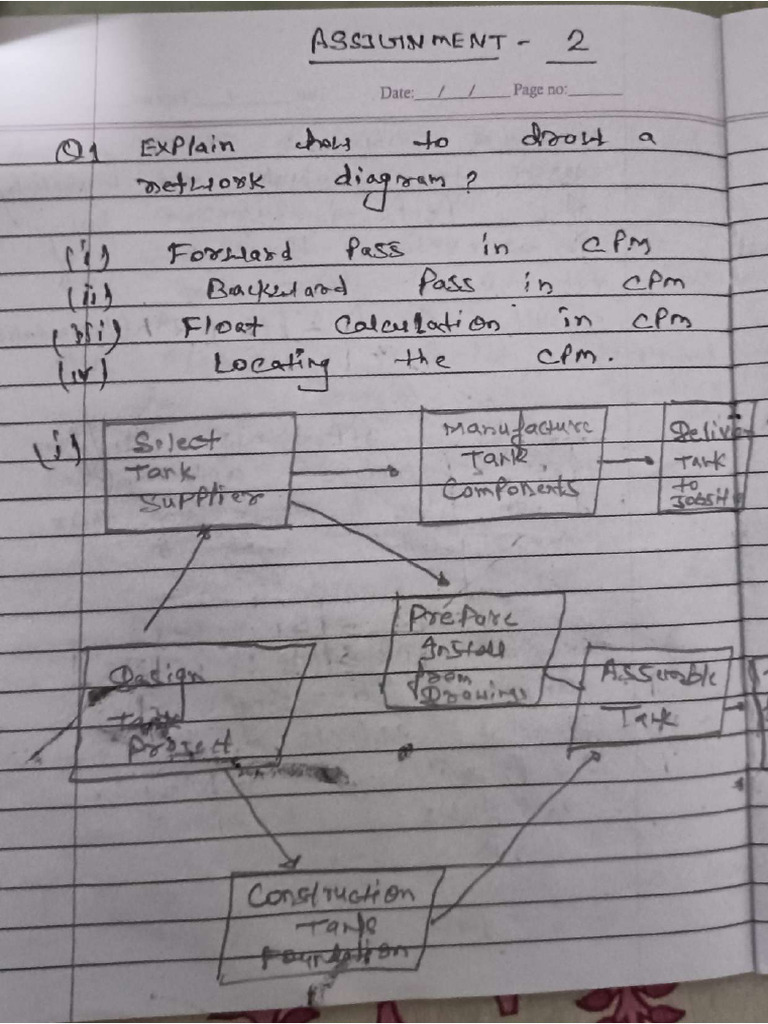 ASSIGNMENT - 2
Date: / / Page no:
Q1 Explain how to draw a
network diagram?
(i) Forward Pass in CPM
(ii) Backward Pass in CPM
(iii) Float Calculation in CPM
(iv) Locating the CPM.
(i)
Select
Tank
Supplier
Manufacture
Tank
Components
Deliver
Tank
to
Jobsite
Prepare
Install
from
Drawings
Design
Tank
Project
Assemble
Tank
Construction
Tank
Foundation